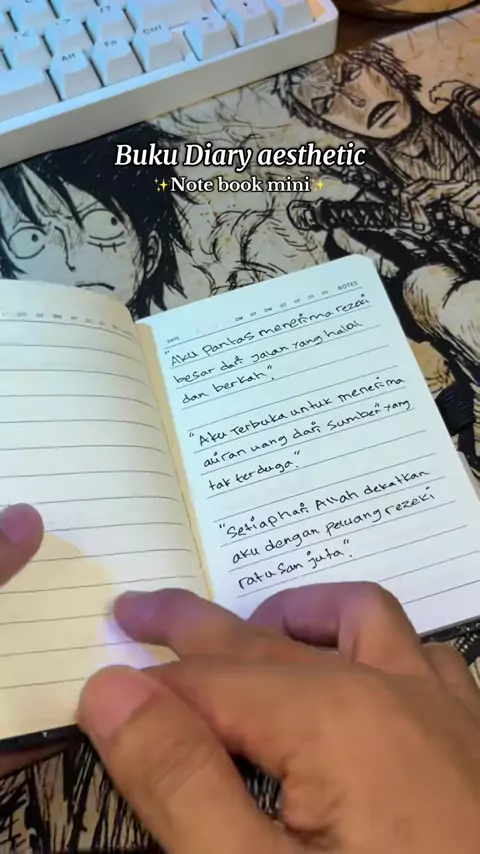 Alt
Fn
Ctrl
Buku Diary aesthetic
✨Note book mini✨
DATE
NOTES
"Aku Pantas menerima rezeki
besar dari jalan yang halal
dan berkah".
"Aku Terbuka untuk menerima
aliran uang dari sumber" yang
tak terduga."
"Setiap hari Allah dekatkan
aku dengan peluang rezeki
ratusan juta".